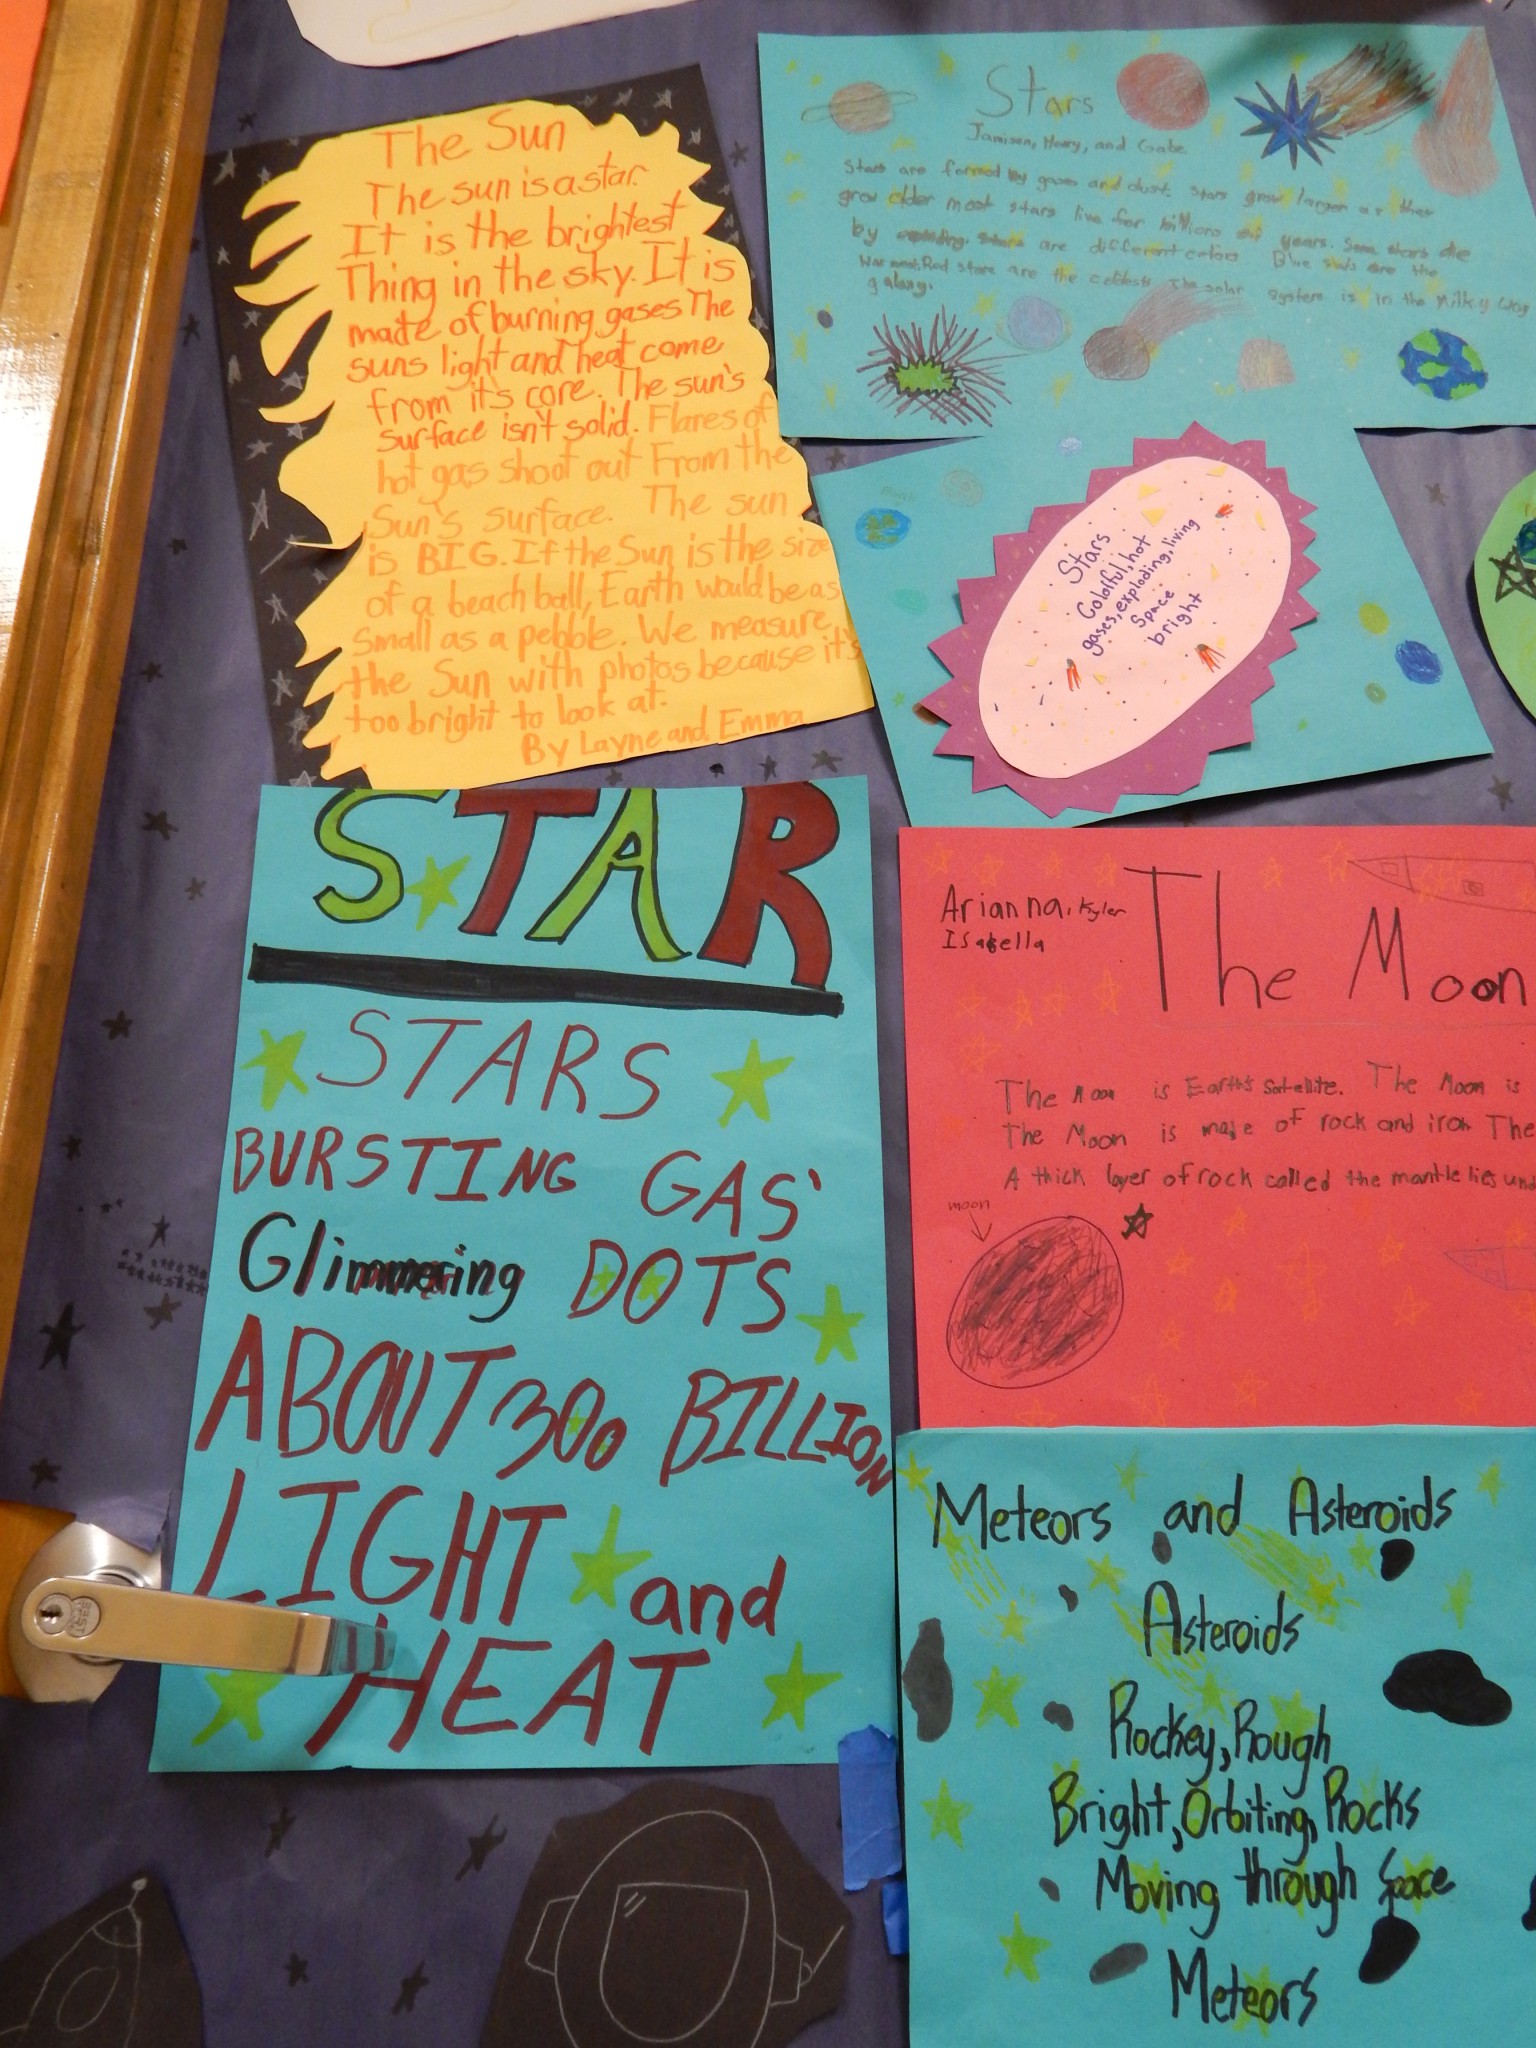 The Sun
The sun is a star.
It is the brightest
Thing in the sky. It is
made of burning gases The
suns light and heat come
from it's core. The sun's
surface isn't solid. Flares of
hot gas shoot out From the
Sun's surface. The sun
is BIG. If the Sun is the size
of a beach ball, Earth would be as
Small as a pebble. We measure
the Sun with photos because it's
too bright to look at.
By Layne and Emma
Stars
Jamison, Henry, and Gabe
Stars are formed by gases and dust. Stars grow larger as they
grow older most stars live for billions of years. Some stars die
by exploding. Stars are different colors Blue stars are the
Red stars are the coldest The solar system is in the Milky Way
galaxy.
Stars
Colorful, hot
gases, exploding, living
Space
bright
STAR
STARS
BURSTING GAS'
Glimmering DOTS
ABOUT 300 BILLION
LIGHT and
HEAT
Arianna, Kyler
Isabella
The Moon
The Moon is Earth's satellite. The Moon is
The Moon is made of rock and iron The
A thick layer of rock called the mantle lies und
moon
Meteors and Asteroids
Asteroids
Rockey, Rough
Bright, Orbiting, Rocks
Moving through Space
Meteors